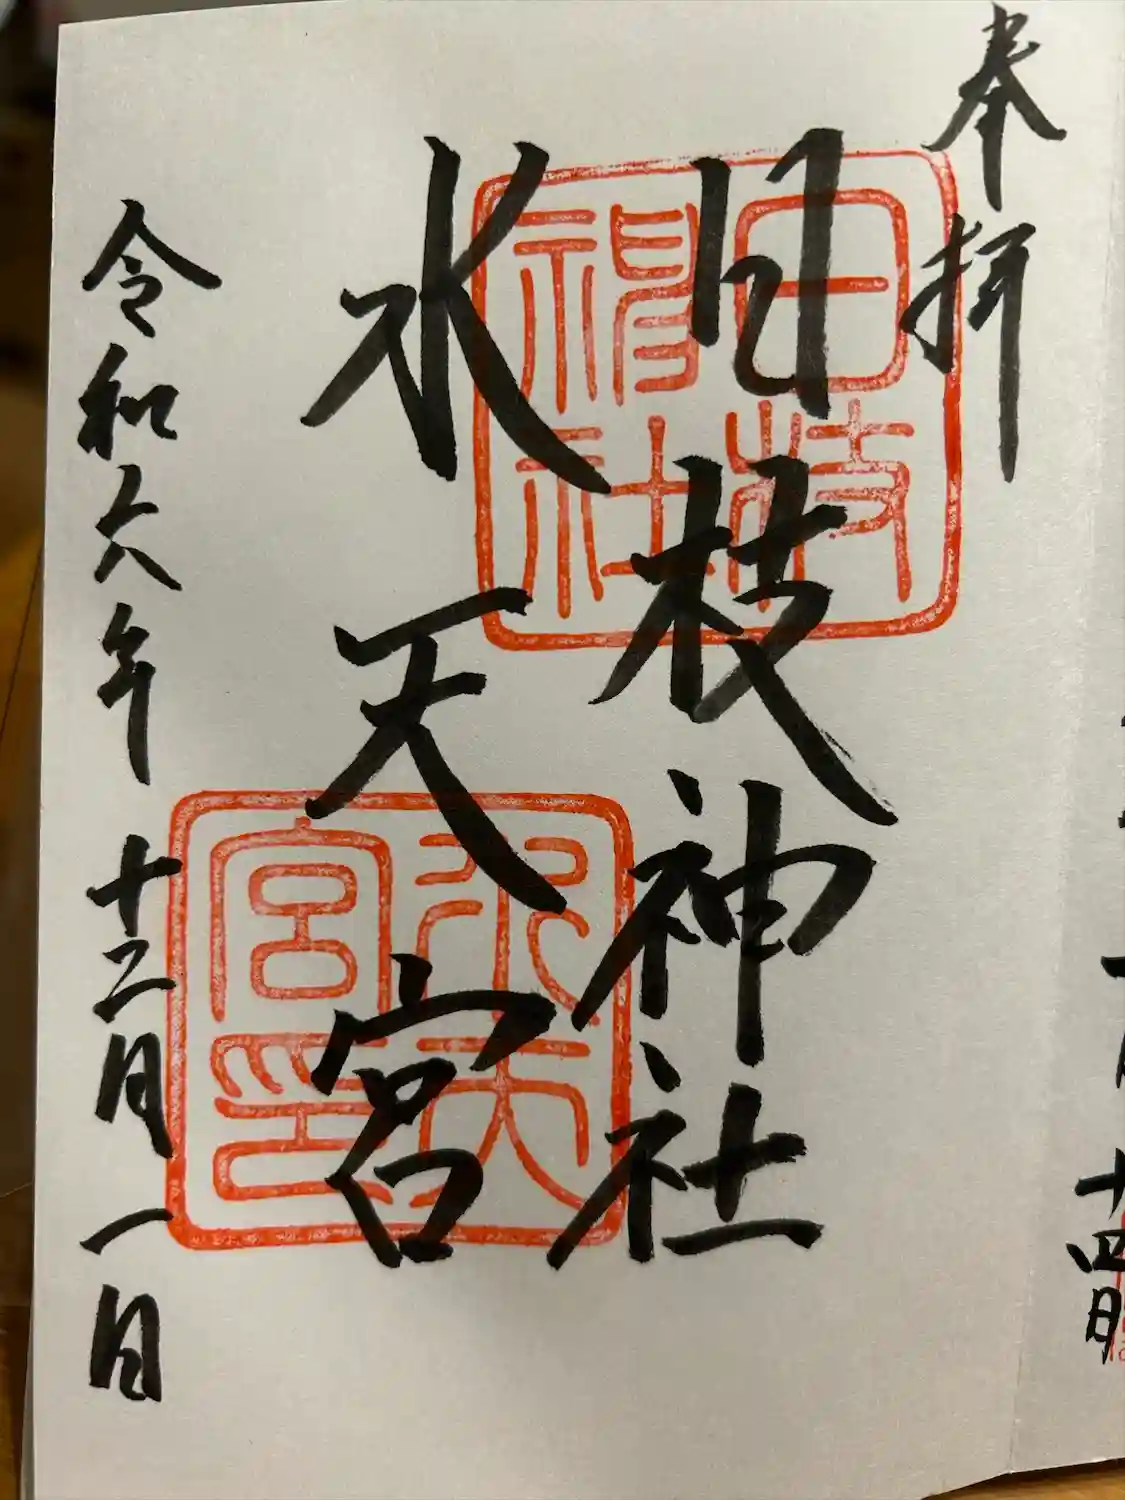 奉拝
日枝神社
水天宮
令和六年十二月一日
日枝神社
水天宮印
十四日